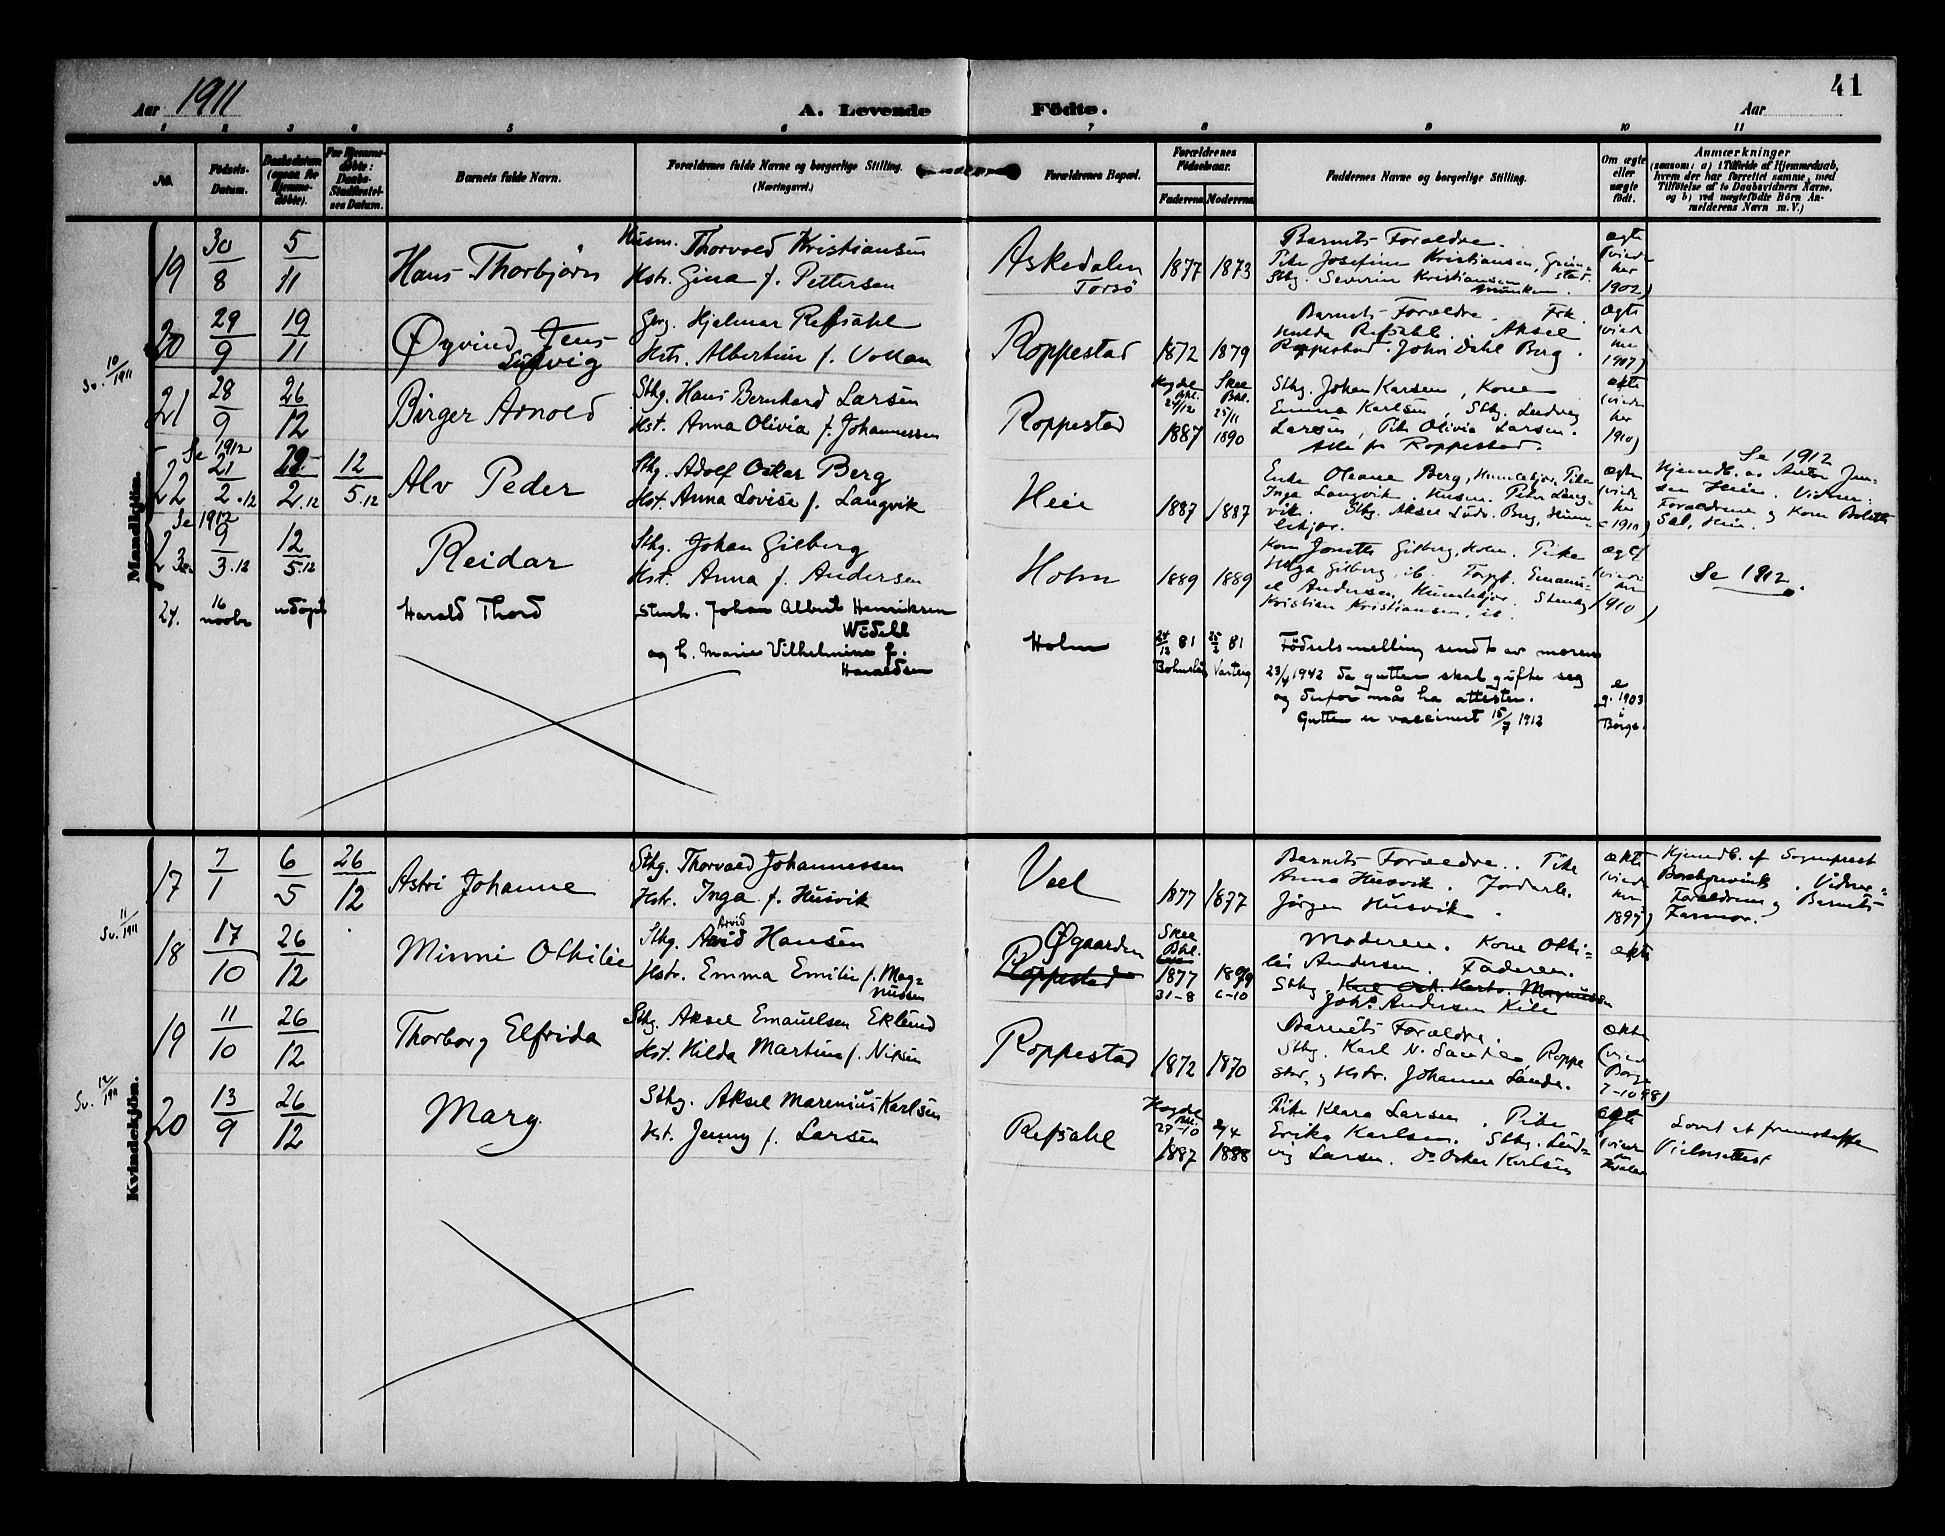 41
Aar 1911
A. Levende Födte.
Aar
1 2 3 4 5 6 7 8 9 10 11
No.
Födsels-
Datum.
Daabsdatum
(ogsaa for
Hjemme-
döbte).
For Hjemme-
döbte:
Daabs-
Stadfæstel-
ses Datum.
Barnets fulde Navn.
Forældrenes fulde Navne og borgerlige Stilling.
(Næringsvei.)
Forældrenes Bopæl.
Forældrenes
Födselsaar.
Faderens Moderens
Faddernes Navne og borgerlige Stilling.
Om ægte
eller
uægte
födt.
Anmærkninger
(saasom: a) i Tilfælde af Hjemmedaab,
hvem der har forrettet samme, med
Tilföielse af to Daabsvidners Navne,
og b) ved uægtefödte Börn An-
melderens Navn m. V.)
Mandkjön.
19
30/8
5/11
Hans Thorbjørn
Husm. Thorvald Kristiansen
Hstr. Gina f. Pettersen
Askedalen
Torsø
1877 1873
Barnets Forældre.
Pike Josefine Kristiansen,
Stbg. Severin Kristiansen
ægte
(viede
her
1902)
Sv. 10/1911
20
29/9
19/11
Øyvind Jens
Ludvig
Hjelmar Refsahl
Hstr. Albertine f. Vollan
Roppestad
1872 1879
Barnets Forældre. Frk.
Hulda Refsahl. Aksel
Roppestad. John Dahl Berg.
ægte
(viede
her
1907)
21
28/9
26/12
Birger Arnold
Stbg. Hans Bernhard Larsen
Hst. Anna Olivia f. Johannessen
Roppestad
24/12
1887
Skee
Bhl.
25/11
1890
Stbg. Johan Karsen, Kone
Emma Karlsen, Stbg. Ludvig
Larsen, Pike Olivia Larsen.
Alle fr Roppestad.
ekte
(viede
her
1910)
Se 1912
22
21/2.12
2.12
12/5.12
Alv Peder
Stbg. Adolf Oskar Berg
Hst. Anna Lovise f. Langvik
Heie
1887 1887
Enke Oleane Berg, Hunnebjør, Pike
Inga Langvik. Husm. Peter Lang-
vik. Stbg. Aksel Ludv. Berg, Hunn-
ebjør.
ægte
(viede
her
1910)
Se 1912
Hjemdb. av Anton Jen-
sen Heie. Vidner:
Forældrene og Kone
Se 1912
23
9/3.12
12/5.12
Reidar
Stbg. Johan Gilberg
Hst. Anna f. Andersen
Holm
1889 1889
Kone Gilberg, Holm. Pike
Helga Gilberg, ib. Emanu-
el Andersen, Hunnebjør. Stenhg
Kristian Kristiansen, ib.
ægte
(viede
her
1910)
Se 1912.
24.
16
novbr
udøpt
Harald Thord
stenh. Johan Albert Henriksen
Wedell
og h. Marie Vilhelmine f.
Haraldsen
Holm
24/12 81
25/2 81
Varteig
Födselsmelling sendt av moren
23/4 1942 da gutten skal gifte seg
og derfor må ha attesten.
Gutten er vaccinert 15/7 1912
e
g. 1903
i
Borge.
Kvindekjön.
17
7/1
6/5
26/12
Astri Johanne
Stbg. Thorvald Johannessen
Hstr. Inga f. Husvik
Veel
1877 1877
Barnets Forældre. Pike
Anna Husvik. Jordarb.
Jørgen Husvik.
ækte
(viede
her
1897)
Hjemdb. af Sogneprest
Borchgrevink. Vidner:
Forældrene og Barnets
Farmor.
Sv. 11/1911
18
17/10
26/12
Minni Othilie
Arvid
Stbg. Arvid Hansen
Hstr. Emma Emilie f. Mag-
nussen
Øgaarden
Roppestad
Skee
Bhl.
1877
31-8
1879
6-10
Moderen. Kone Othi-
lie Andersen. Faderen.
Stbg. Karl Osk. Magnussen
Johs. Andersen Kile
ekte
19
11/10
26/12
Thorborg Elfrida
Stbg. Aksel Emanuelsen Eklund
Hst. Hilda Martine f. Nilsen
Roppestad
1872 1870
Barnets Forældre.
Stbg. Karl N. Roppe
stad, og Hstr. Johanne Sande.
ekte
(viede
Borge
7-10 98)
Sv. 12/1911
20
13/9
26/12
Mary
Stbg. Aksel Marenius Karlsen
Hst. Jenny f. Larsen
Refsahl
27-10
1887
2/4
1888
Pike Klara Larsen. Pike
Erika Karlsen. Stbg. Lud-
vig Larsen. Do Oskar Karlsen
ægte
(viede
Hvaler
Lovet at fremskaffe
Vielsattest